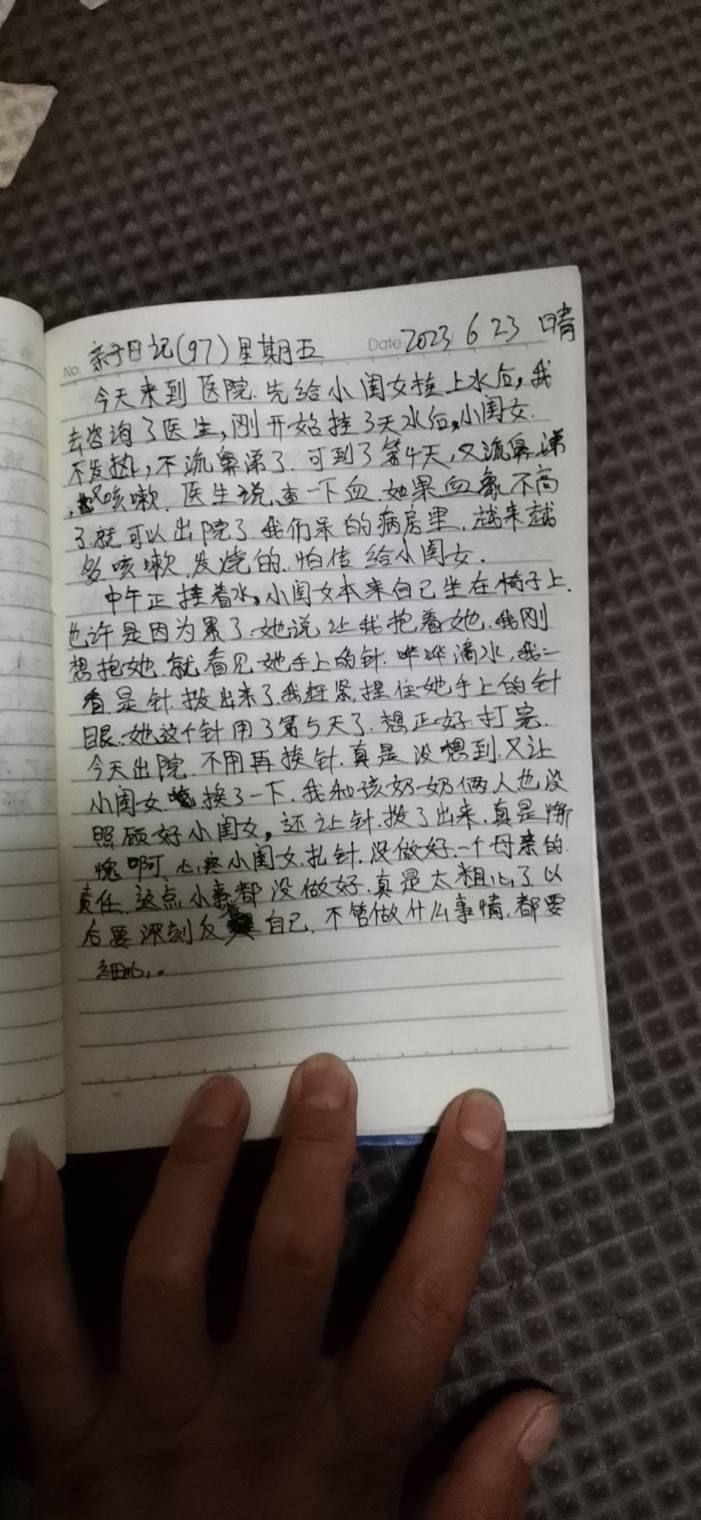 No. 亲子日记(97) 星期五 Date 2023 6 23 晴
今天来到医院.先给小闺女挂上水后,我
去咨询了医生,刚开始挂了3天水后,小闺女.
不发热,不流鼻涕了.可到了第4天,又流鼻涕
,又咳嗽.医生说,查一下血.如果血象不高
了.就可以出院了.我们呆的病房里.越来越
多咳嗽.发烧的.怕传给小闺女.
中午正挂着水,小闺女本来自己坐在椅子上.
也许是因为累了.她说让我抱着她.我刚
想抱她.就看见她手上的针.哗哗滴水,我一
看是针.拨出来了.我赶紧.捏住她手上的针
眼.她这个针用了第5天了.想正好.打完.
今天出院.不用再挨针.真是没想到.又让
小闺女挨了一下.我和该奶奶俩人也没
照顾好小闺女,还让针.拨了出来.真是惭
愧啊.心疼小闺女.扎针.没做好.一个母亲的.
责任.这点小事都没做好.真是太粗心了.以
后要深刻反自己.不管做什么事情.都要
细心.。